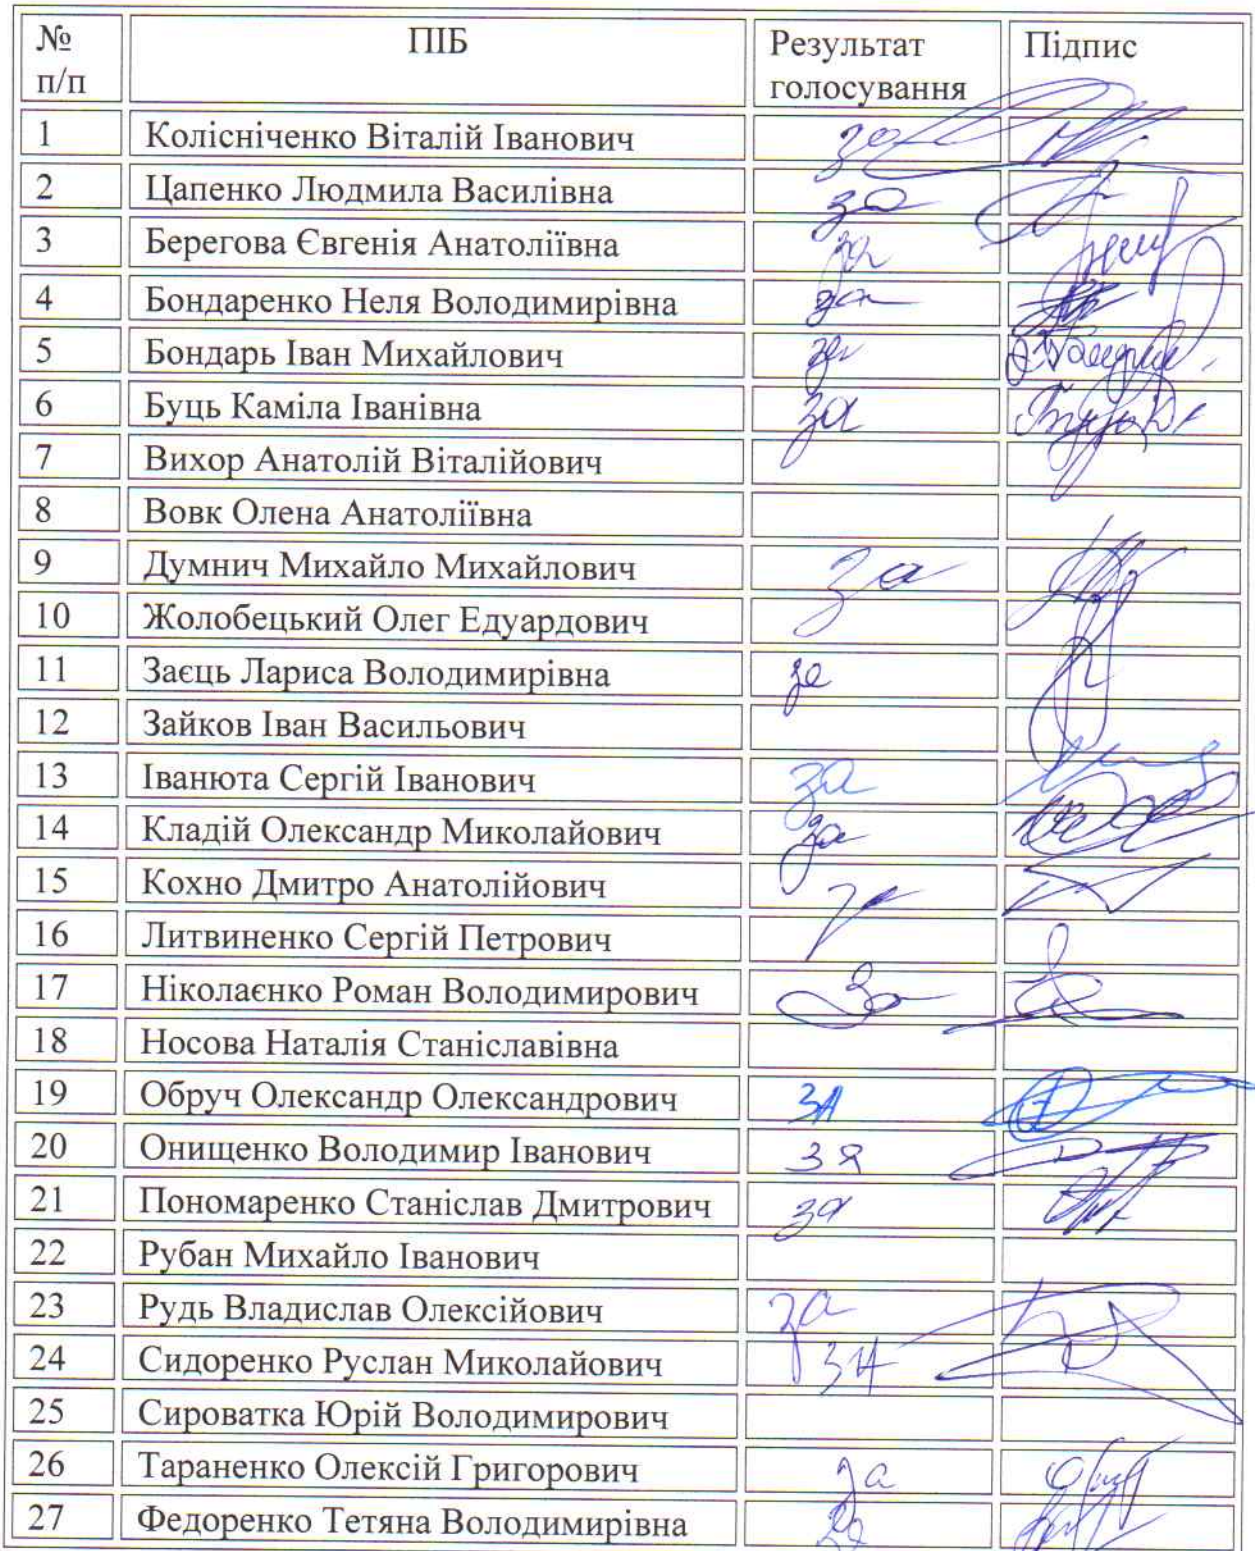 № п/п ПІБ Результат голосування Підпис
1 Колісніченко Віталій Іванович за
2 Цапенко Людмила Василівна за
3 Берегова Євгенія Анатоліївна за
4 Бондаренко Неля Володимирівна за
5 Бондарь Іван Михайлович за
6 Буць Каміла Іванівна за
7 Вихор Анатолій Віталійович
8 Вовк Олена Анатоліївна
9 Думнич Михайло Михайлович за
10 Жолобецький Олег Едуардович
11 Заєць Лариса Володимирівна за
12 Зайков Іван Васильович
13 Іванюта Сергій Іванович за
14 Кладій Олександр Миколайович за
15 Кохно Дмитро Анатолійович
16 Литвиненко Сергій Петрович
17 Ніколаєнко Роман Володимирович за
18 Носова Наталія Станіславівна
19 Обруч Олександр Олександрович ЗА
20 Онищенко Володимир Іванович ЗА
21 Пономаренко Станіслав Дмитрович за
22 Рубан Михайло Іванович
23 Рудь Владислав Олексійович за
24 Сидоренко Руслан Миколайович ЗА
25 Сироватка Юрій Володимирович
26 Тараненко Олексій Григорович за
27 Федоренко Тетяна Володимирівна за